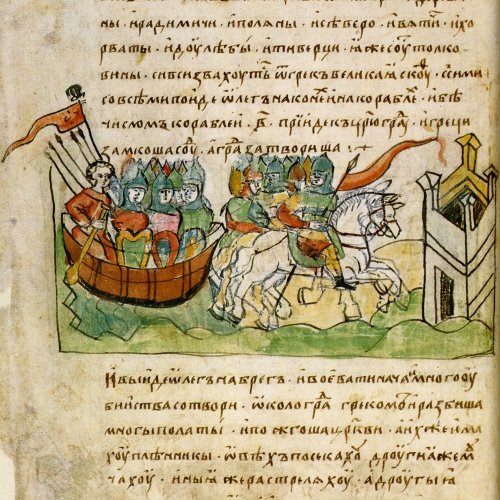 ны · ирадимичи · иполѧны · исѣверо · ивѧти · ихо
рваты · идоулѣбы · итиверци · ӕжесоутолко
вины · сивсизвахоутⷭ ѿгрекъвеликаӕскоуⷴ · сими
совсѣмипоидеѿлегънаконеинакораблѣ · ибѣ
числомъкораблеи · в҃ · прїидекъцрюграⷣ · игреци
замкошасоуⷣ · аграⷣзатвориша ·
ивыидеѿлегънабрегъ · ивоеватинача · имногооу
бииствасотвори · ѿколограⷣ грекомъиразбиша
многыполаты · ипожгошацркви · аихжеима
хоуплѣнники · ѿвѣхъпосѣкахоу дроугиӕжем
чахоу · иныѧжерастрелѧхоу · адроугыѧ